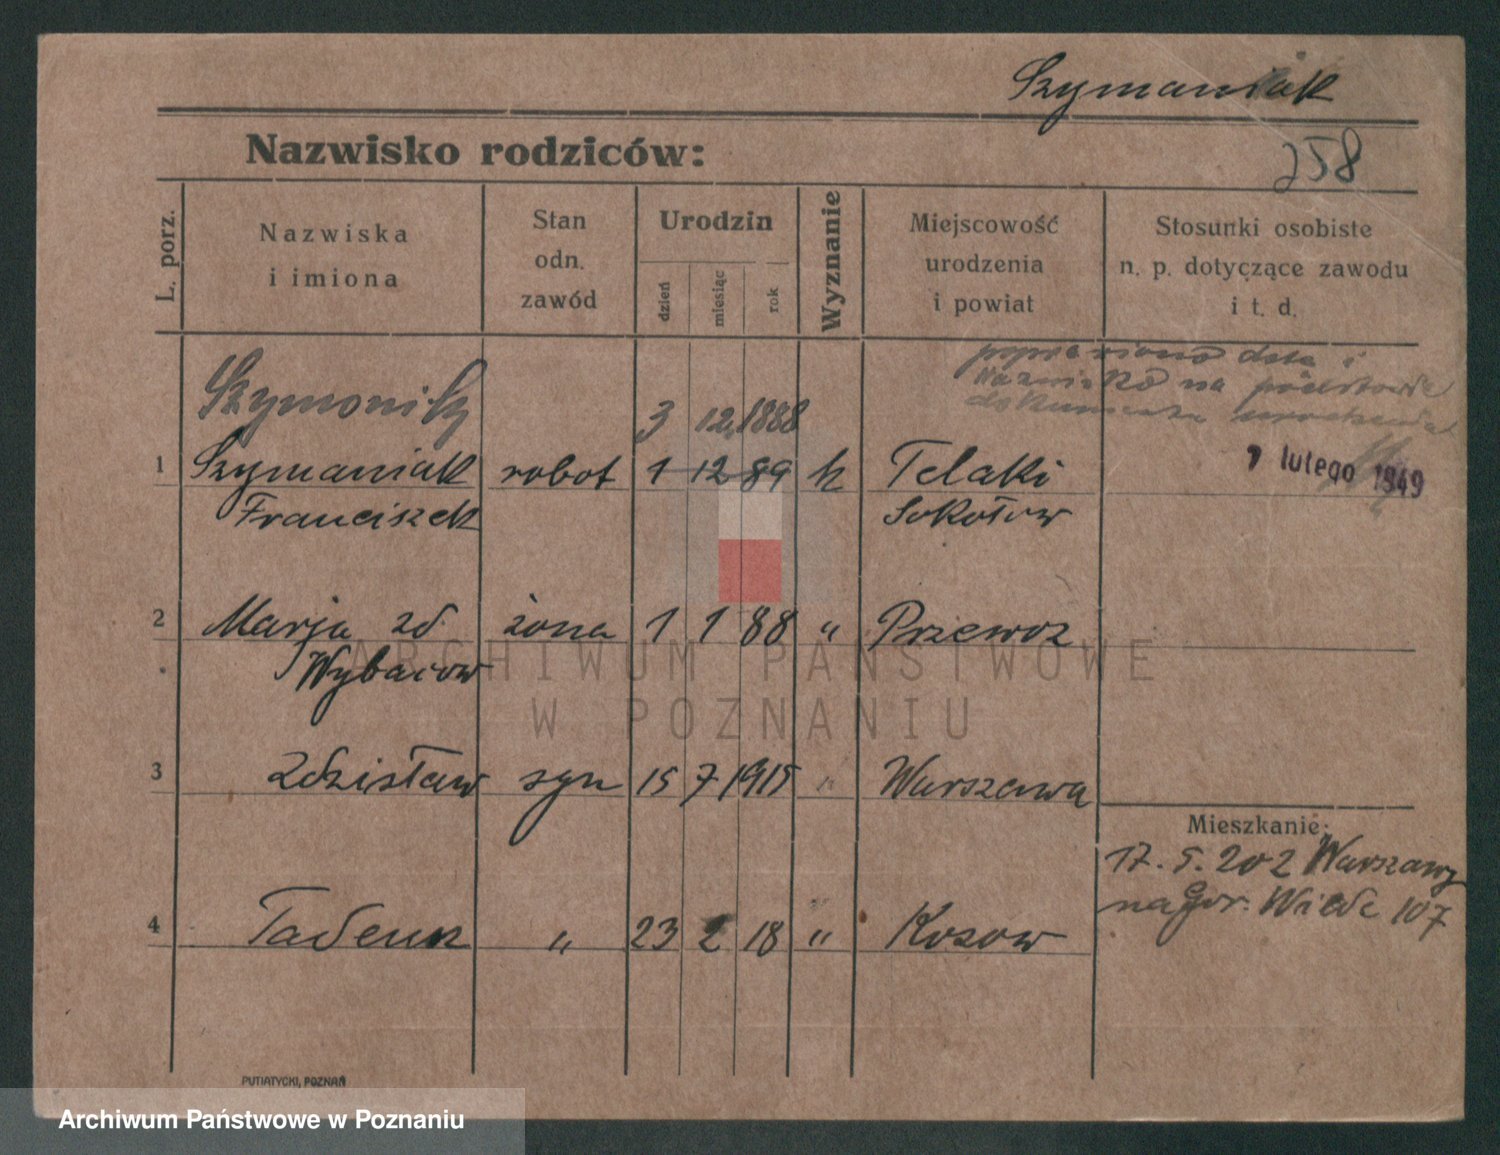 Szymaniak
258
Nazwisko rodziców:
L. porz.
Nazwiska
i imiona
Stan
odn.
zawód
Urodzin
dzień
miesiąc
rok
Wyznanie
Miejscowość
urodzenia
i powiat
Stosunki osobiste
n. p. dotyczące zawodu
i t. d.
poprawiono data i
nazwisko na podstawie
dokumentu urodzenia
7 lutego 1949
3 12. 1888
1 Szymaniak robot 1 12 89 k Telaki
Franciszek Sokołow
2 Marja zd żona 1 1 88 " Przewoz
3 Zdzisław syn 15 7 1915 " Warszawa
Mieszkanie:
17. 5. 202 Warszawy
na Gór. Wilde 107
4 Tadeusz " 23 2 18 " Kosow
PUTIATYCKI, POZNAŃ
ARCHIWUM PAŃSTWOWE
W POZNANIU
Archiwum Państwowe w Poznaniu